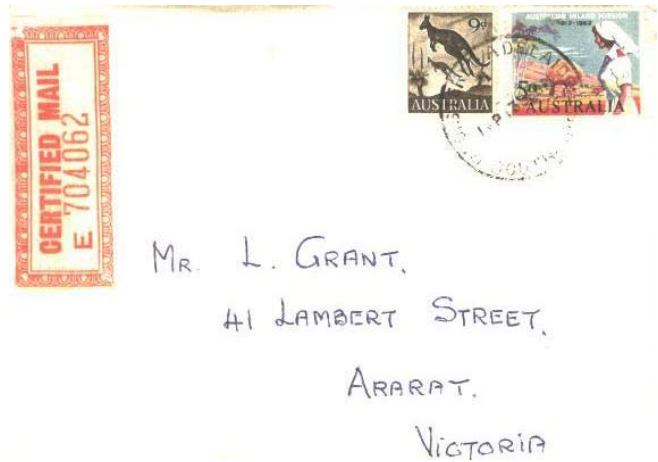 CERTIFIED MAIL
E 704062
9D
AUSTRALIA
AUSTRALIAN INLAND MISSION
1912-1962
5D
AUSTRALIA
ADELAIDE
SOUTH
MR. L. GRANT,
41 LAMBERT STREET,
ARARAT.
VICTORIA